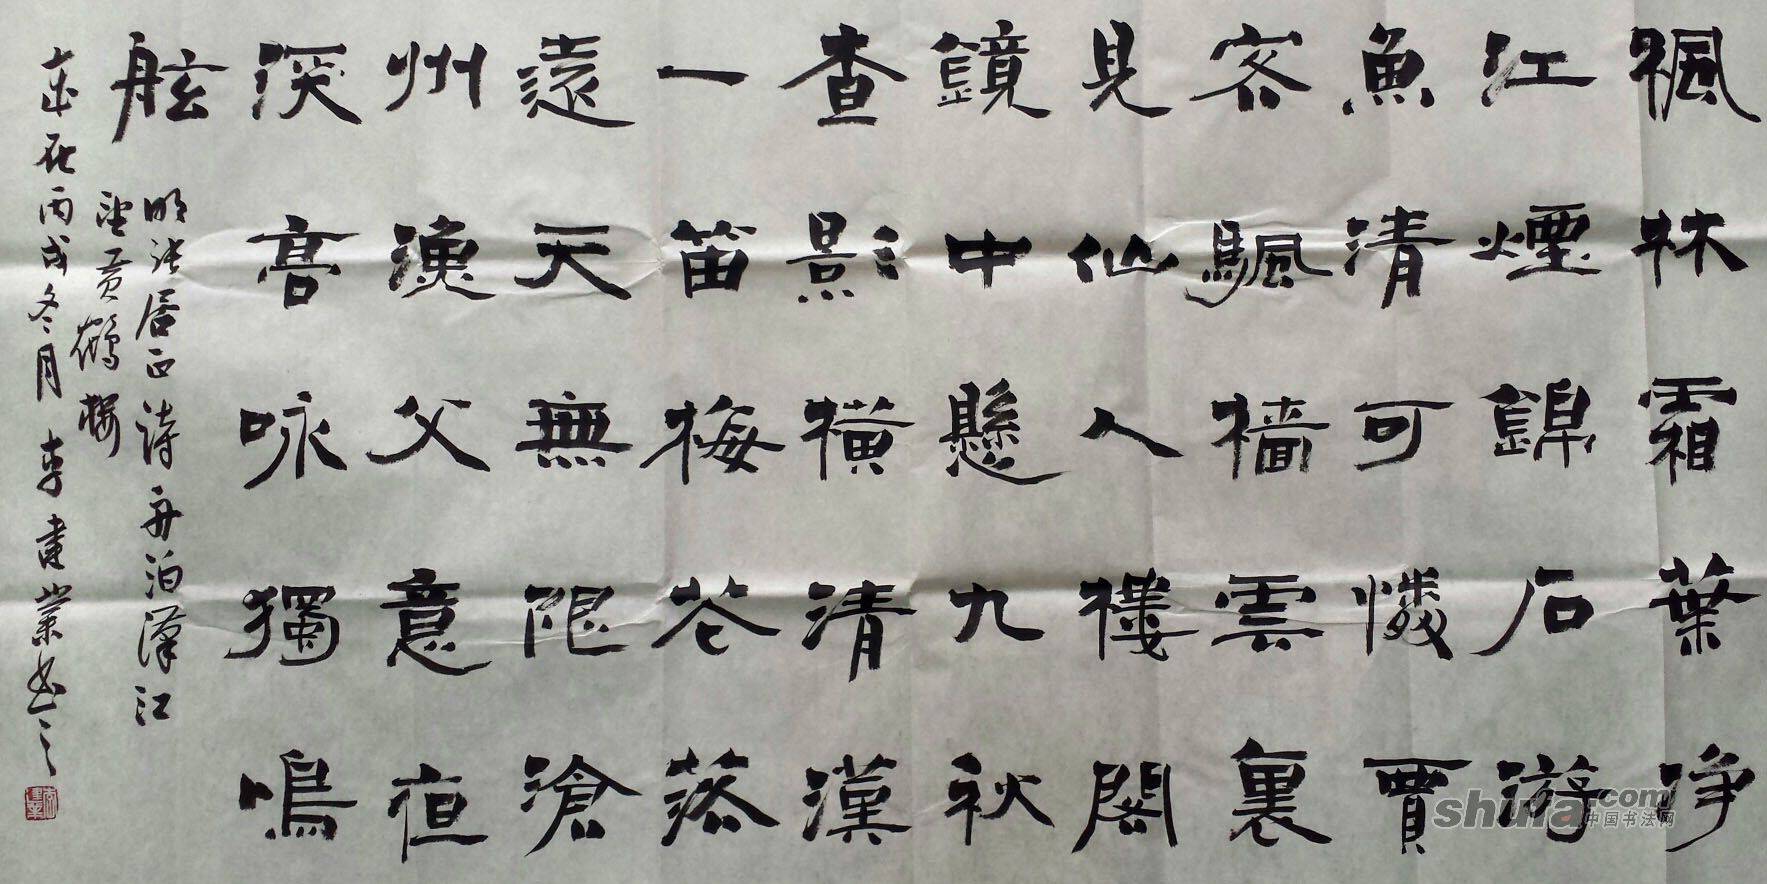 楓林霜葉净
江煙錦石游
魚清可憐賈
客颿檣雲裏
見仙人樓閣
鏡中懸九秋
查影橫清漢
一笛梅花落
遠天無限滄
州漁父意夜
深高咏獨鳴
舷
明張居正詩舟泊漢江
望黄鶴樓
歲在丙戌冬月李建業书之
shufa.com
中国书法网